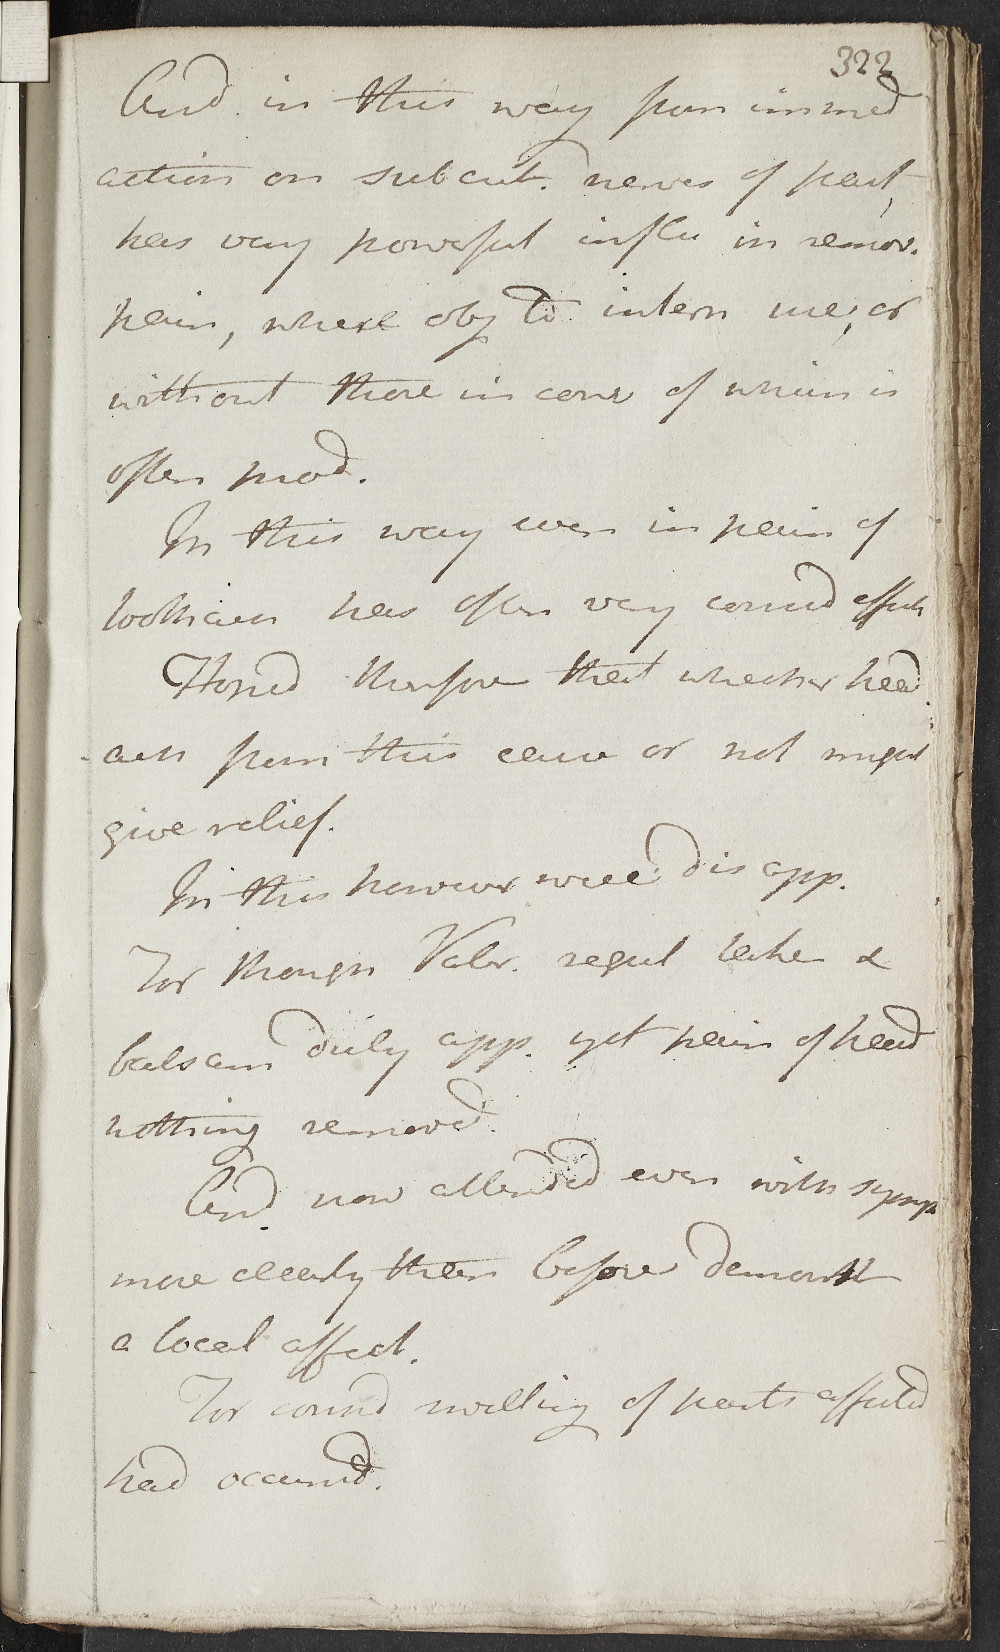 322
And in this way from immed
action on subcut. nerves of part,
has very powerful influ in remov.
pain, where obj to intern use, or
without those in conseq of which is
often prod.
In this way even in pain of
toothach has often very consid effects
Hoped therefore that whether head
ach from this cause or not might
give relief.
In this however were disapp.
For though Valer. regul taken &
balsam duly app. yet pain of head
nothing removed.
And now attended even with symp
more clearly than before demonstr
a local affect.
For consid swelling of parts affected
had occurred.